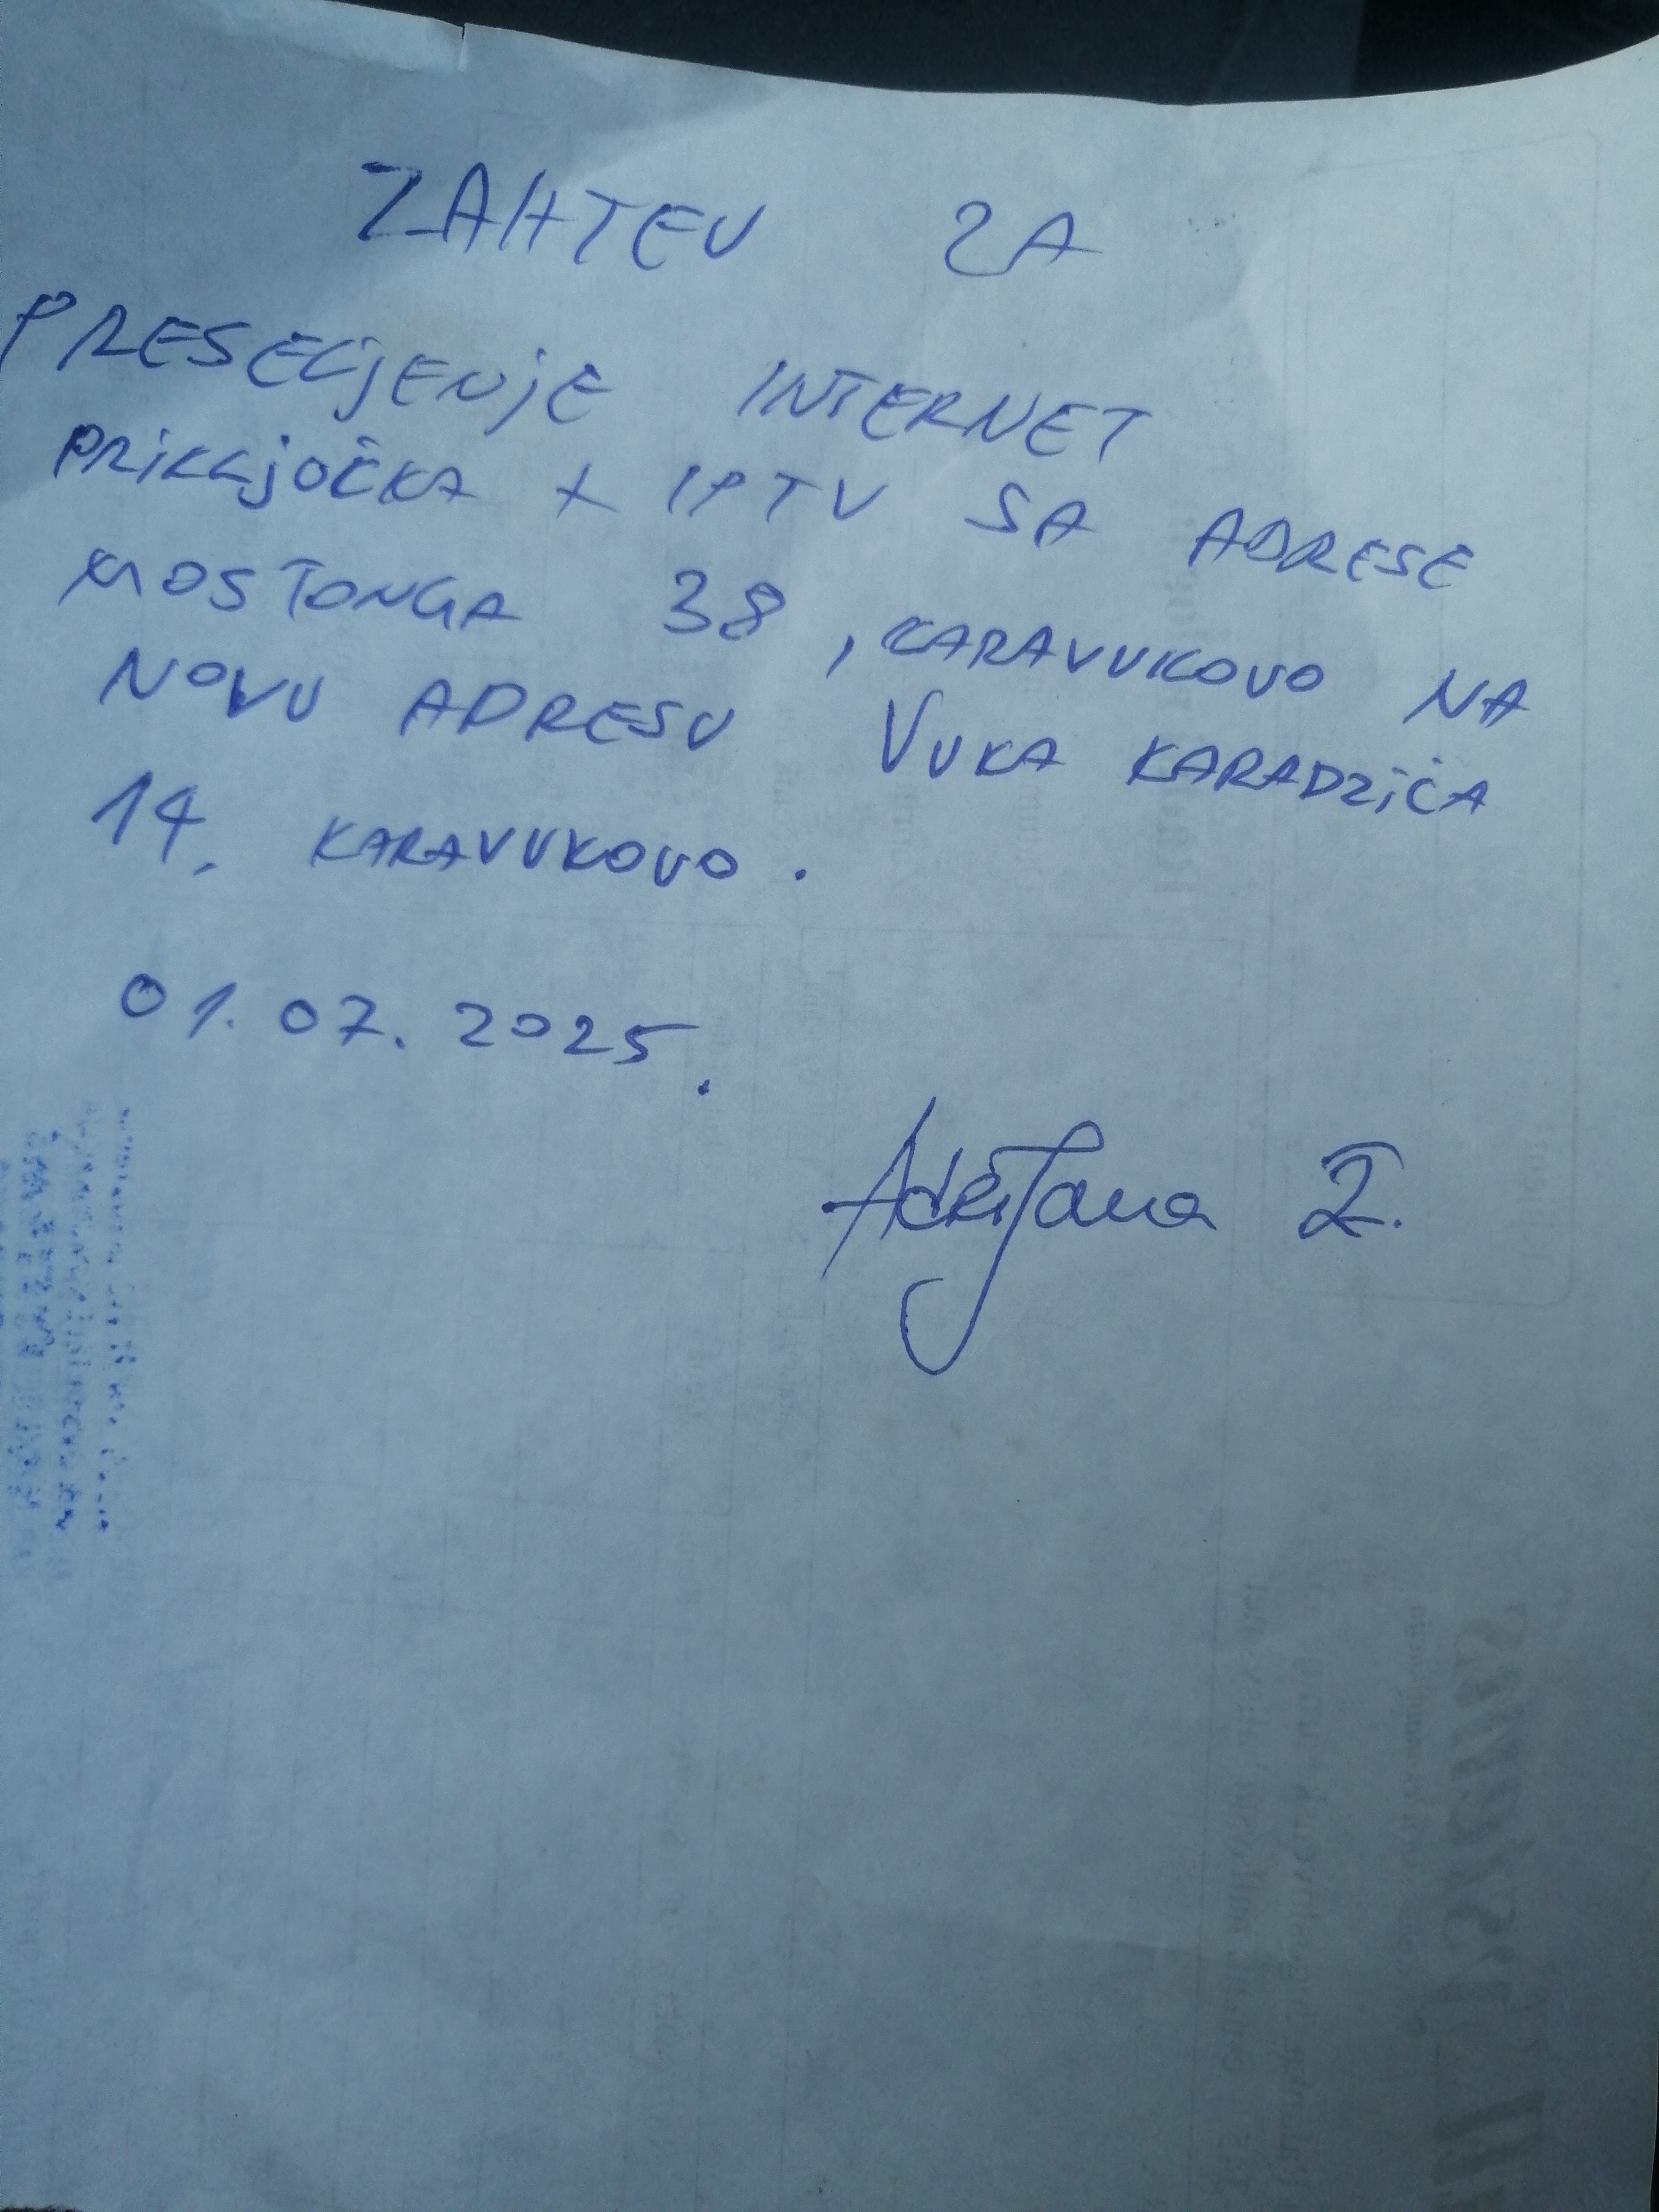 ZAHTEV ZA
PRESELJENJE INTERNET
PRIKLJOČKA + IPTV SA ADRESE
MOSTONGA 38, KARAVUKOVO NA
NOVU ADRESU VUKA KARADZIĆA
14, KARAVUKOVO.
01.07.2025.
Adrijana Z.